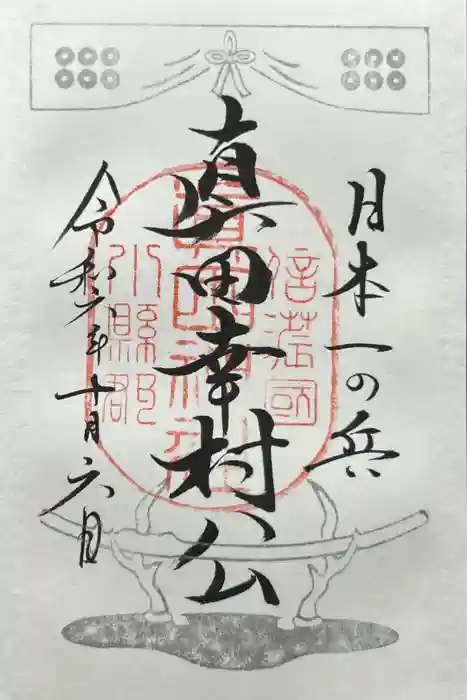 日本一の兵
真田幸村公
令和六年十月六日
信濃國
小縣郡